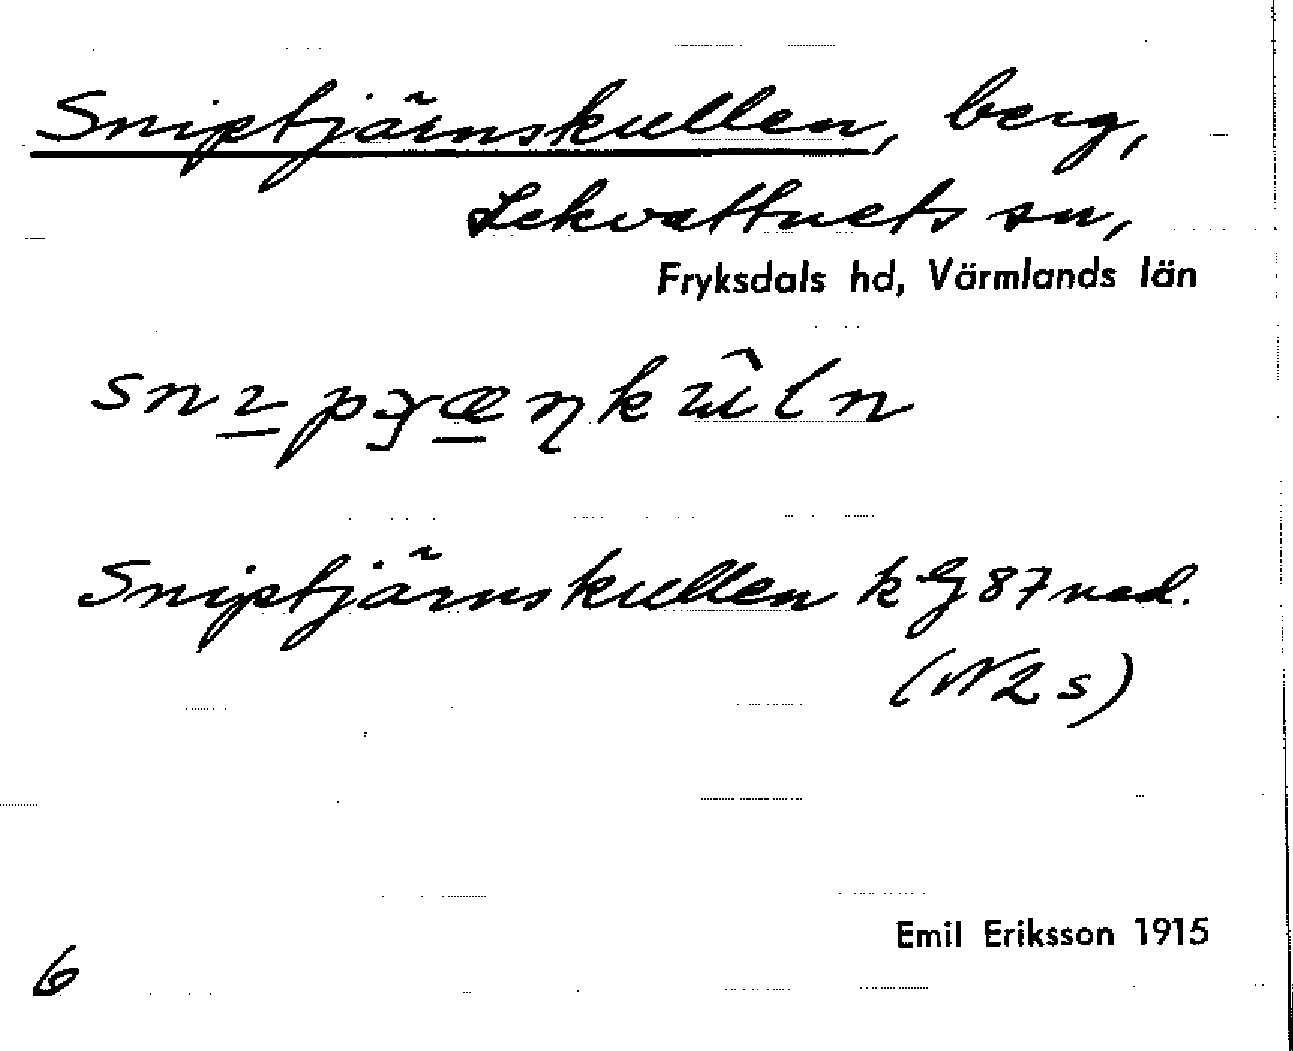 Sniptjärnskullen, berg,
Lekvattnets sn,
Fryksdals hd, Värmlands län
Sniptjärnskullen k G 87 ned.
Emil Eriksson 1915
6